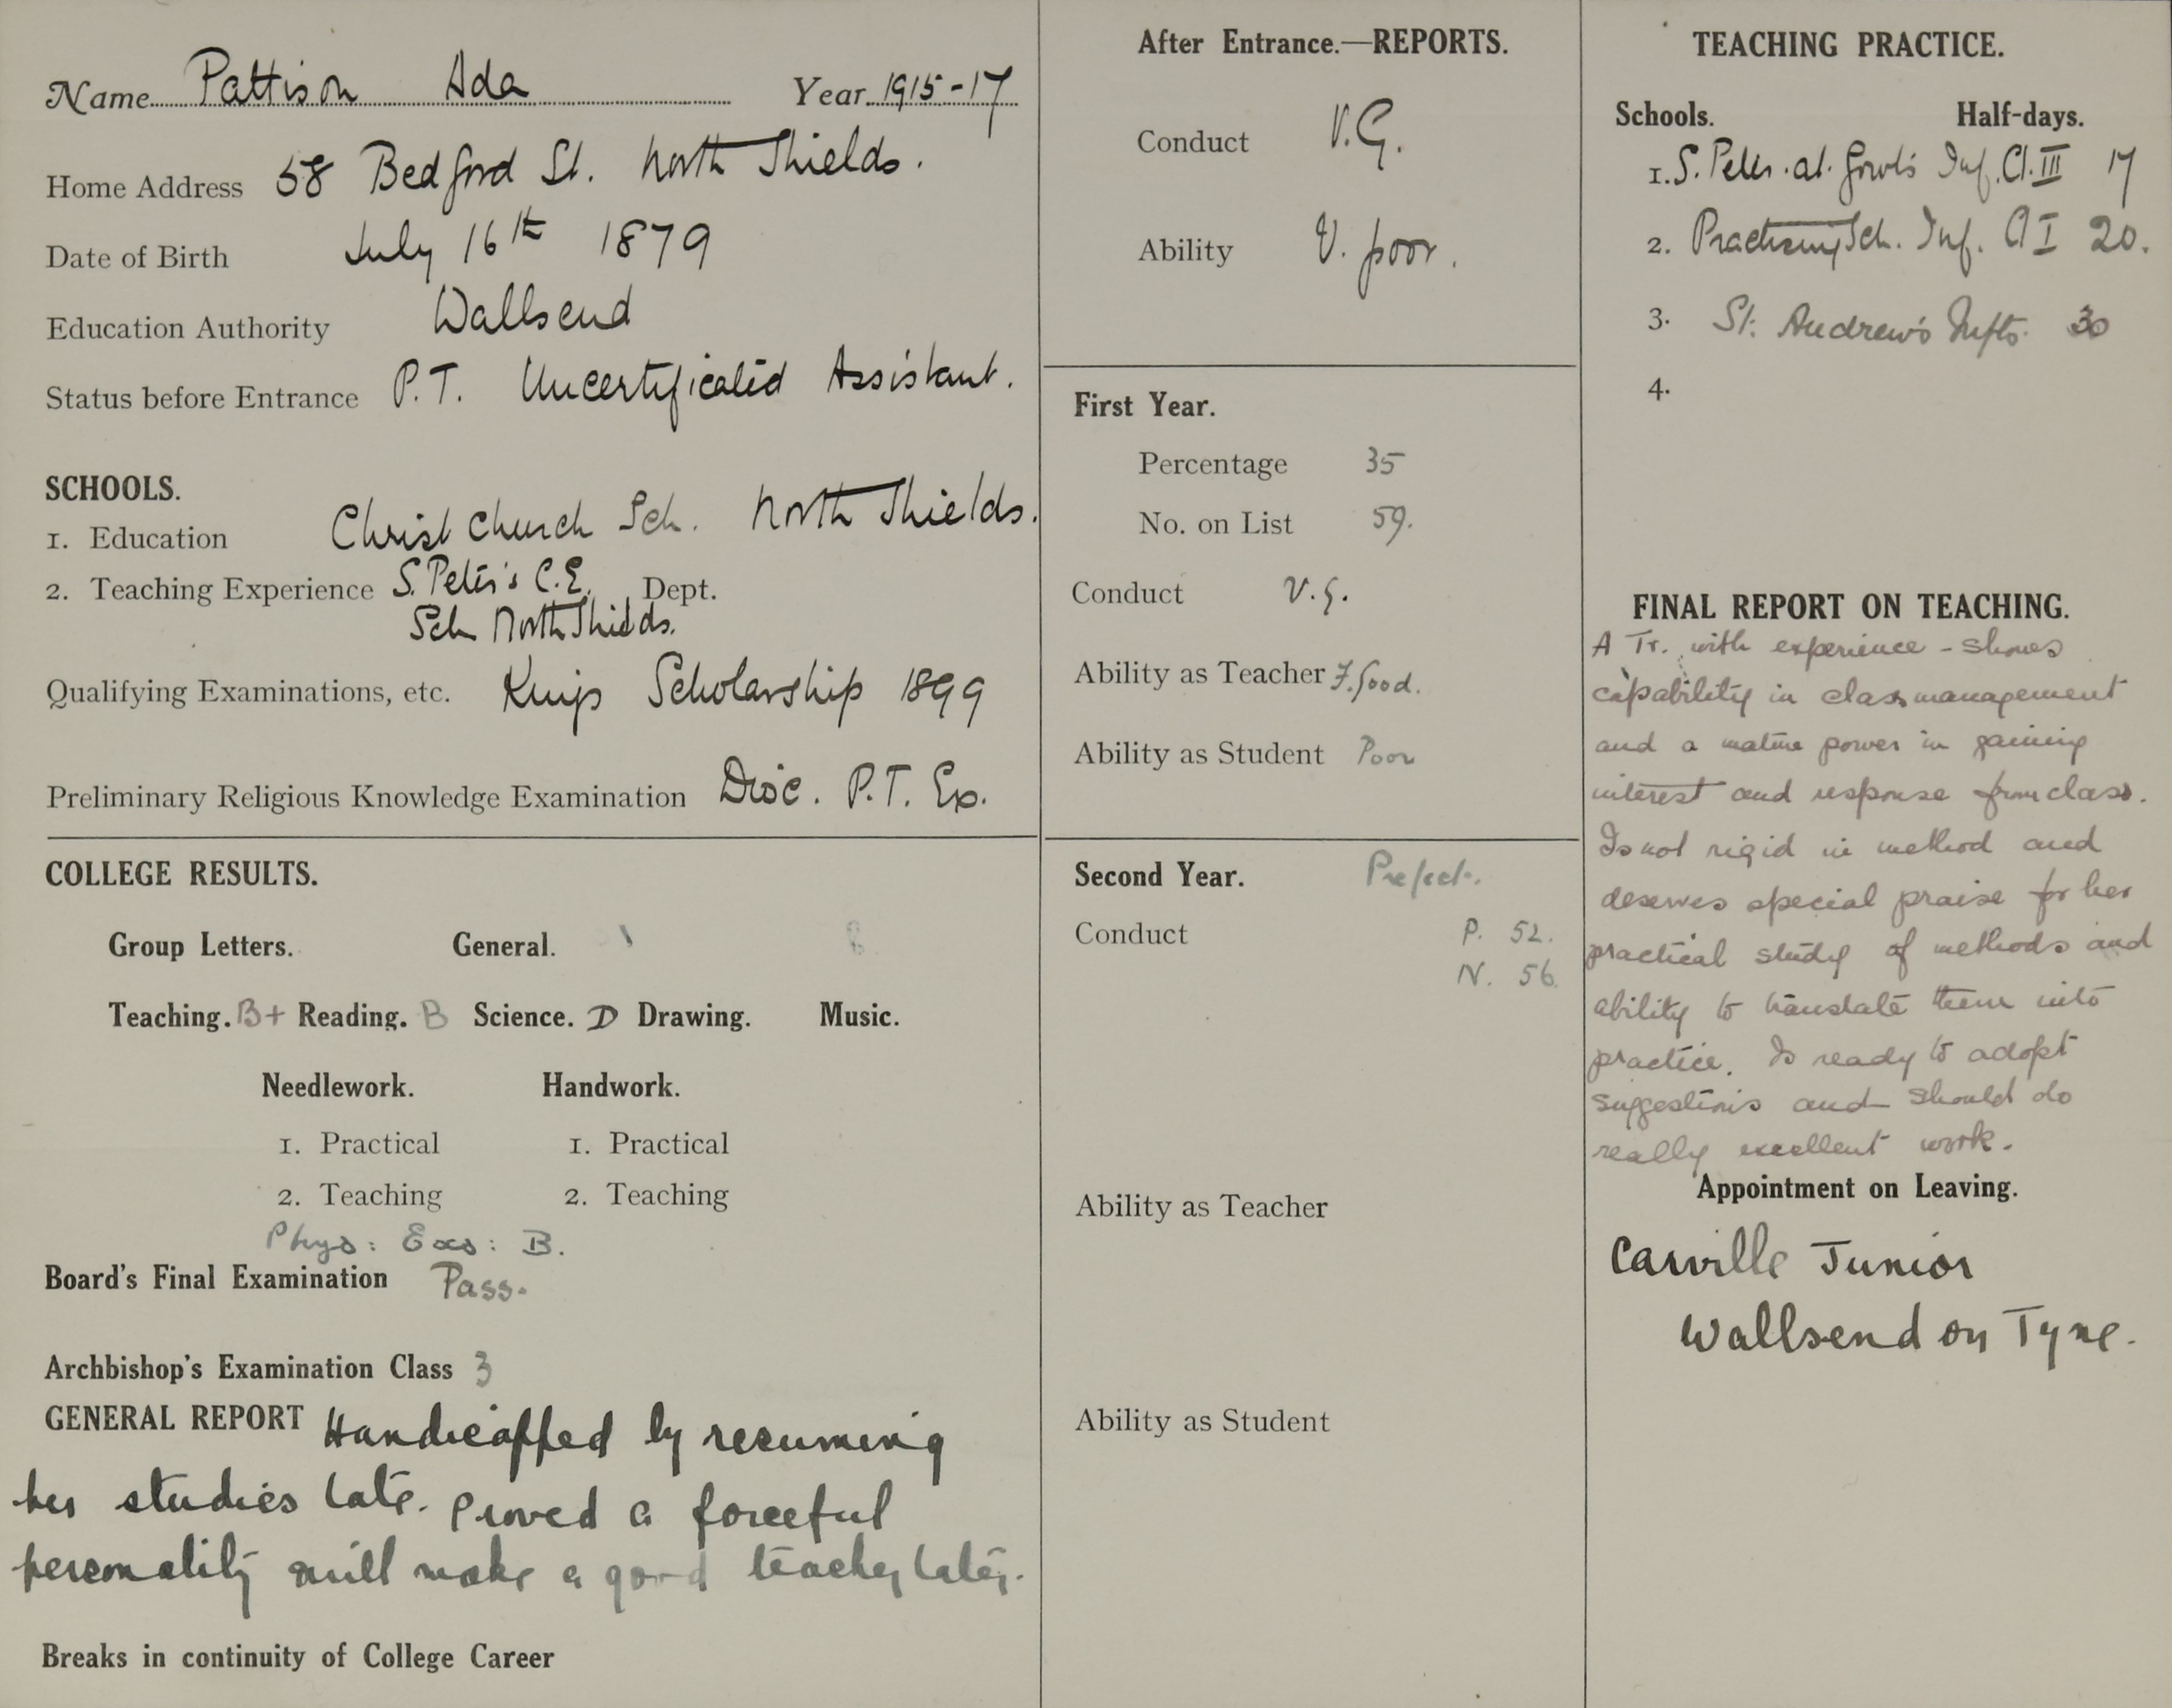 Name Pattison Ada Year 1915-17
Home Address 58 Bedford St. North Shields.
Date of Birth July 16th 1879
Education Authority Wallsend
Status before Entrance P.T. Uncertificated Assistant.
SCHOOLS.
1. Education Christ Church Sch. North Shields.
2. Teaching Experience S. Peter's C.E. Dept.
Sch North Shields.
Qualifying Examinations, etc. Kings Scholarship 1899
Preliminary Religious Knowledge Examination Dioc. P.T. Ex.
COLLEGE RESULTS.
Group Letters. General.
Teaching. B+ Reading. B Science. D Drawing. Music.
Needlework. Handwork.
1. Practical 1. Practical
2. Teaching 2. Teaching
Phys: Exs: B.
Board's Final Examination Pass.
Archbishop's Examination Class 3
GENERAL REPORT Handicapped by resuming
her studies late. Proved a forceful
personality & will make a good teacher later.
Breaks in continuity of College Career
After Entrance.—REPORTS.
Conduct V.G.
Ability V. poor.
First Year.
Percentage 35
No. on List 59.
Conduct V.G.
Ability as Teacher F. Good.
Ability as Student Poor
Second Year. Prefect.
Conduct P. 52.
N. 56.
Ability as Teacher
Ability as Student
TEACHING PRACTICE.
Schools. Half-days.
1. S. Peter. at. Inf. Cl. III 17
2. Practising Sch. Inf. Cl I 20.
3. St. Andrew's Infts. 30
4.
FINAL REPORT ON TEACHING.
A Tr. with experience - shows
capability in class management
and a mature power in gaining
interest and response from class.
Is not rigid in method and
deserves special praise for her
practical study of methods and
ability to translate them into
practice. Is ready to adopt
suggestions and should do
really excellent work.
Appointment on Leaving.
Carville Junior
Wallsend on Tyne.